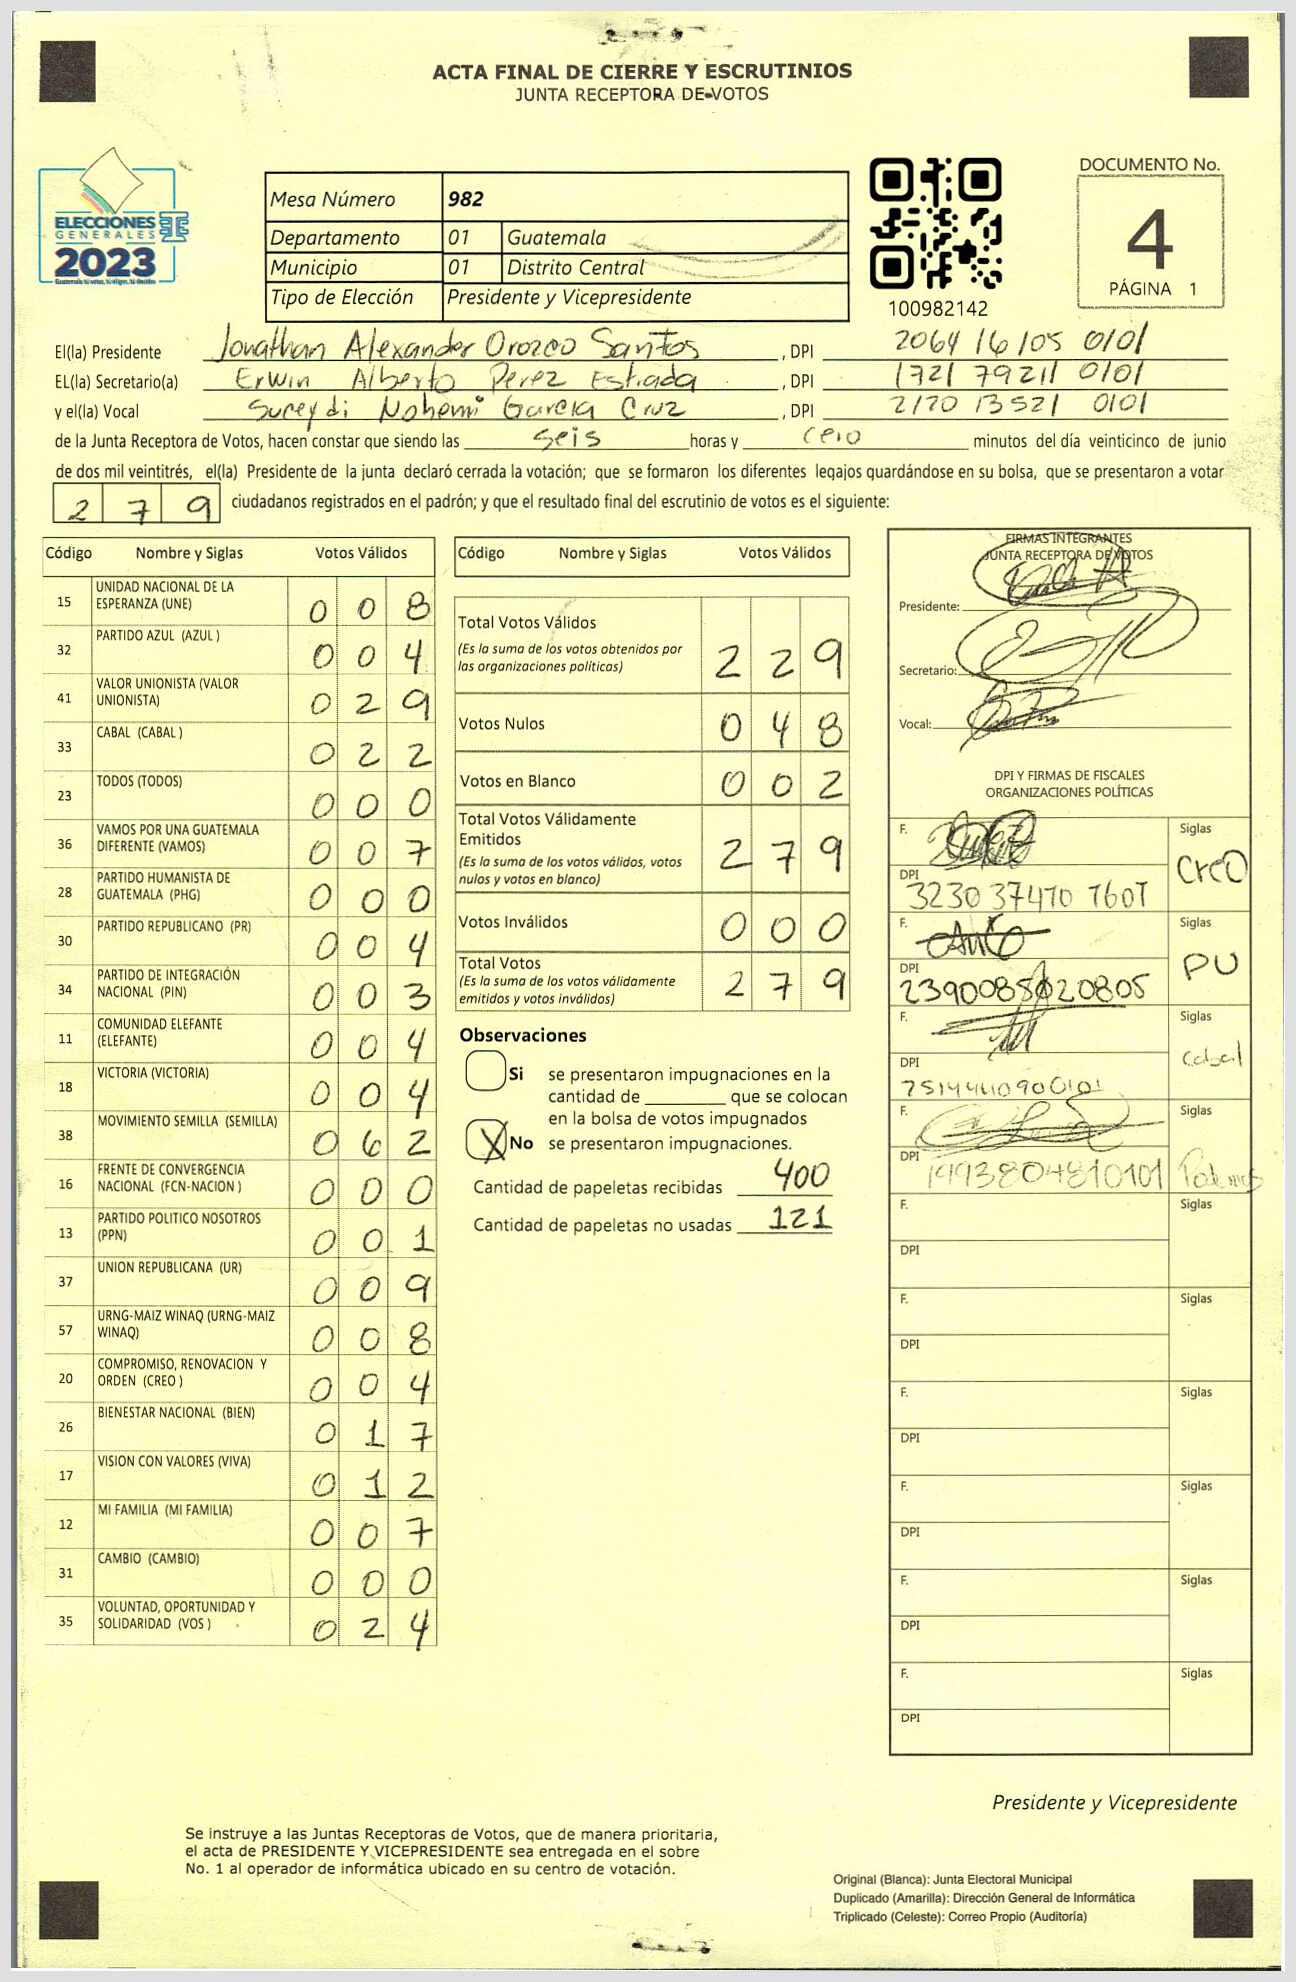 ACTA FINAL DE CIERRE Y ESCRUTINIOS
JUNTA RECEPTORA DE VOTOS
ELECCIONES
GENERALES
2023
Mesa Número 982
Departamento 01 Guatemala
Municipio 01 Distrito Central
Tipo de Elección Presidente y Vicepresidente
100982142
DOCUMENTO No.
4
PÁGINA 1
El(la) Presidente Jonathan Alexander Orozco Santos, DPI 2064 16105 0101
EL(la) Secretario(a) Erwin Alberto Perez Estrada, DPI 1721 79211 0101
y el(la) Vocal Sureydi Nohemi Garcia Cruz, DPI 2170 13521 0101
de la Junta Receptora de Votos, hacen constar que siendo las seis horas y cero minutos del día veinticinco de junio
de dos mil veintitrés, el(la) Presidente de la junta declaró cerrada la votación; que se formaron los diferentes legajos guardándose en su bolsa, que se presentaron a votar
2 7 9 ciudadanos registrados en el padrón; y que el resultado final del escrutinio de votos es el siguiente:
Código Nombre y Siglas Votos Válidos
15 UNIDAD NACIONAL DE LA
ESPERANZA (UNE) 0 0 8
32 PARTIDO AZUL (AZUL ) 0 0 4
41 VALOR UNIONISTA (VALOR
UNIONISTA) 0 2 9
33 CABAL (CABAL ) 0 2 2
23 TODOS (TODOS) 0 0 0
36 VAMOS POR UNA GUATEMALA
DIFERENTE (VAMOS) 0 0 7
28 PARTIDO HUMANISTA DE
GUATEMALA (PHG) 0 0 0
30 PARTIDO REPUBLICANO (PR) 0 0 4
34 PARTIDO DE INTEGRACIÓN
NACIONAL (PIN) 0 0 3
11 COMUNIDAD ELEFANTE
(ELEFANTE) 0 0 4
18 VICTORIA (VICTORIA) 0 0 4
38 MOVIMIENTO SEMILLA (SEMILLA) 0 6 2
16 FRENTE DE CONVERGENCIA
NACIONAL (FCN-NACION ) 0 0 0
13 PARTIDO POLITICO NOSOTROS
(PPN) 0 0 1
37 UNION REPUBLICANA (UR) 0 0 9
57 URNG-MAIZ WINAQ (URNG-MAIZ
WINAQ) 0 0 8
20 COMPROMISO, RENOVACION Y
ORDEN (CREO ) 0 0 4
26 BIENESTAR NACIONAL (BIEN) 0 1 7
17 VISION CON VALORES (VIVA) 0 1 2
12 MI FAMILIA (MI FAMILIA) 0 0 7
31 CAMBIO (CAMBIO) 0 0 0
35 VOLUNTAD, OPORTUNIDAD Y
SOLIDARIDAD (VOS ) 0 2 4
Código Nombre y Siglas Votos Válidos
Total Votos Válidos
(Es la suma de los votos obtenidos por
las organizaciones políticas) 2 2 9
Votos Nulos 0 4 8
Votos en Blanco 0 0 2
Total Votos Válidamente
Emitidos
(Es la suma de los votos válidos, votos
nulos y votos en blanco) 2 7 9
Votos Inválidos 0 0 0
Total Votos
(Es la suma de los votos válidamente
emitidos y votos inválidos) 2 7 9
Observaciones
Si se presentaron impugnaciones en la
cantidad de ________ que se colocan
en la bolsa de votos impugnados
X No se presentaron impugnaciones.
Cantidad de papeletas recibidas 400
Cantidad de papeletas no usadas 121
FIRMAS INTEGRANTES
JUNTA RECEPTORA DE VOTOS
Presidente:
Secretario:
Vocal:
DPI Y FIRMAS DE FISCALES
ORGANIZACIONES POLÍTICAS
F. Siglas
CREO
DPI
3230 37470
F. Siglas
PU
DPI
F. Siglas
Cabal
DPI
F. Siglas
DPI
1993804810101
F. Siglas
DPI
F. Siglas
DPI
F. Siglas
DPI
F. Siglas
DPI
F. Siglas
DPI
F. Siglas
DPI
Presidente y Vicepresidente
Se instruye a las Juntas Receptoras de Votos, que de manera prioritaria,
el acta de PRESIDENTE Y VICEPRESIDENTE sea entregada en el sobre
No. 1 al operador de informática ubicado en su centro de votación.
Original (Blanca): Junta Electoral Municipal
Duplicado (Amarilla): Dirección General de Informática
Triplicado (Celeste): Correo Propio (Auditoría)